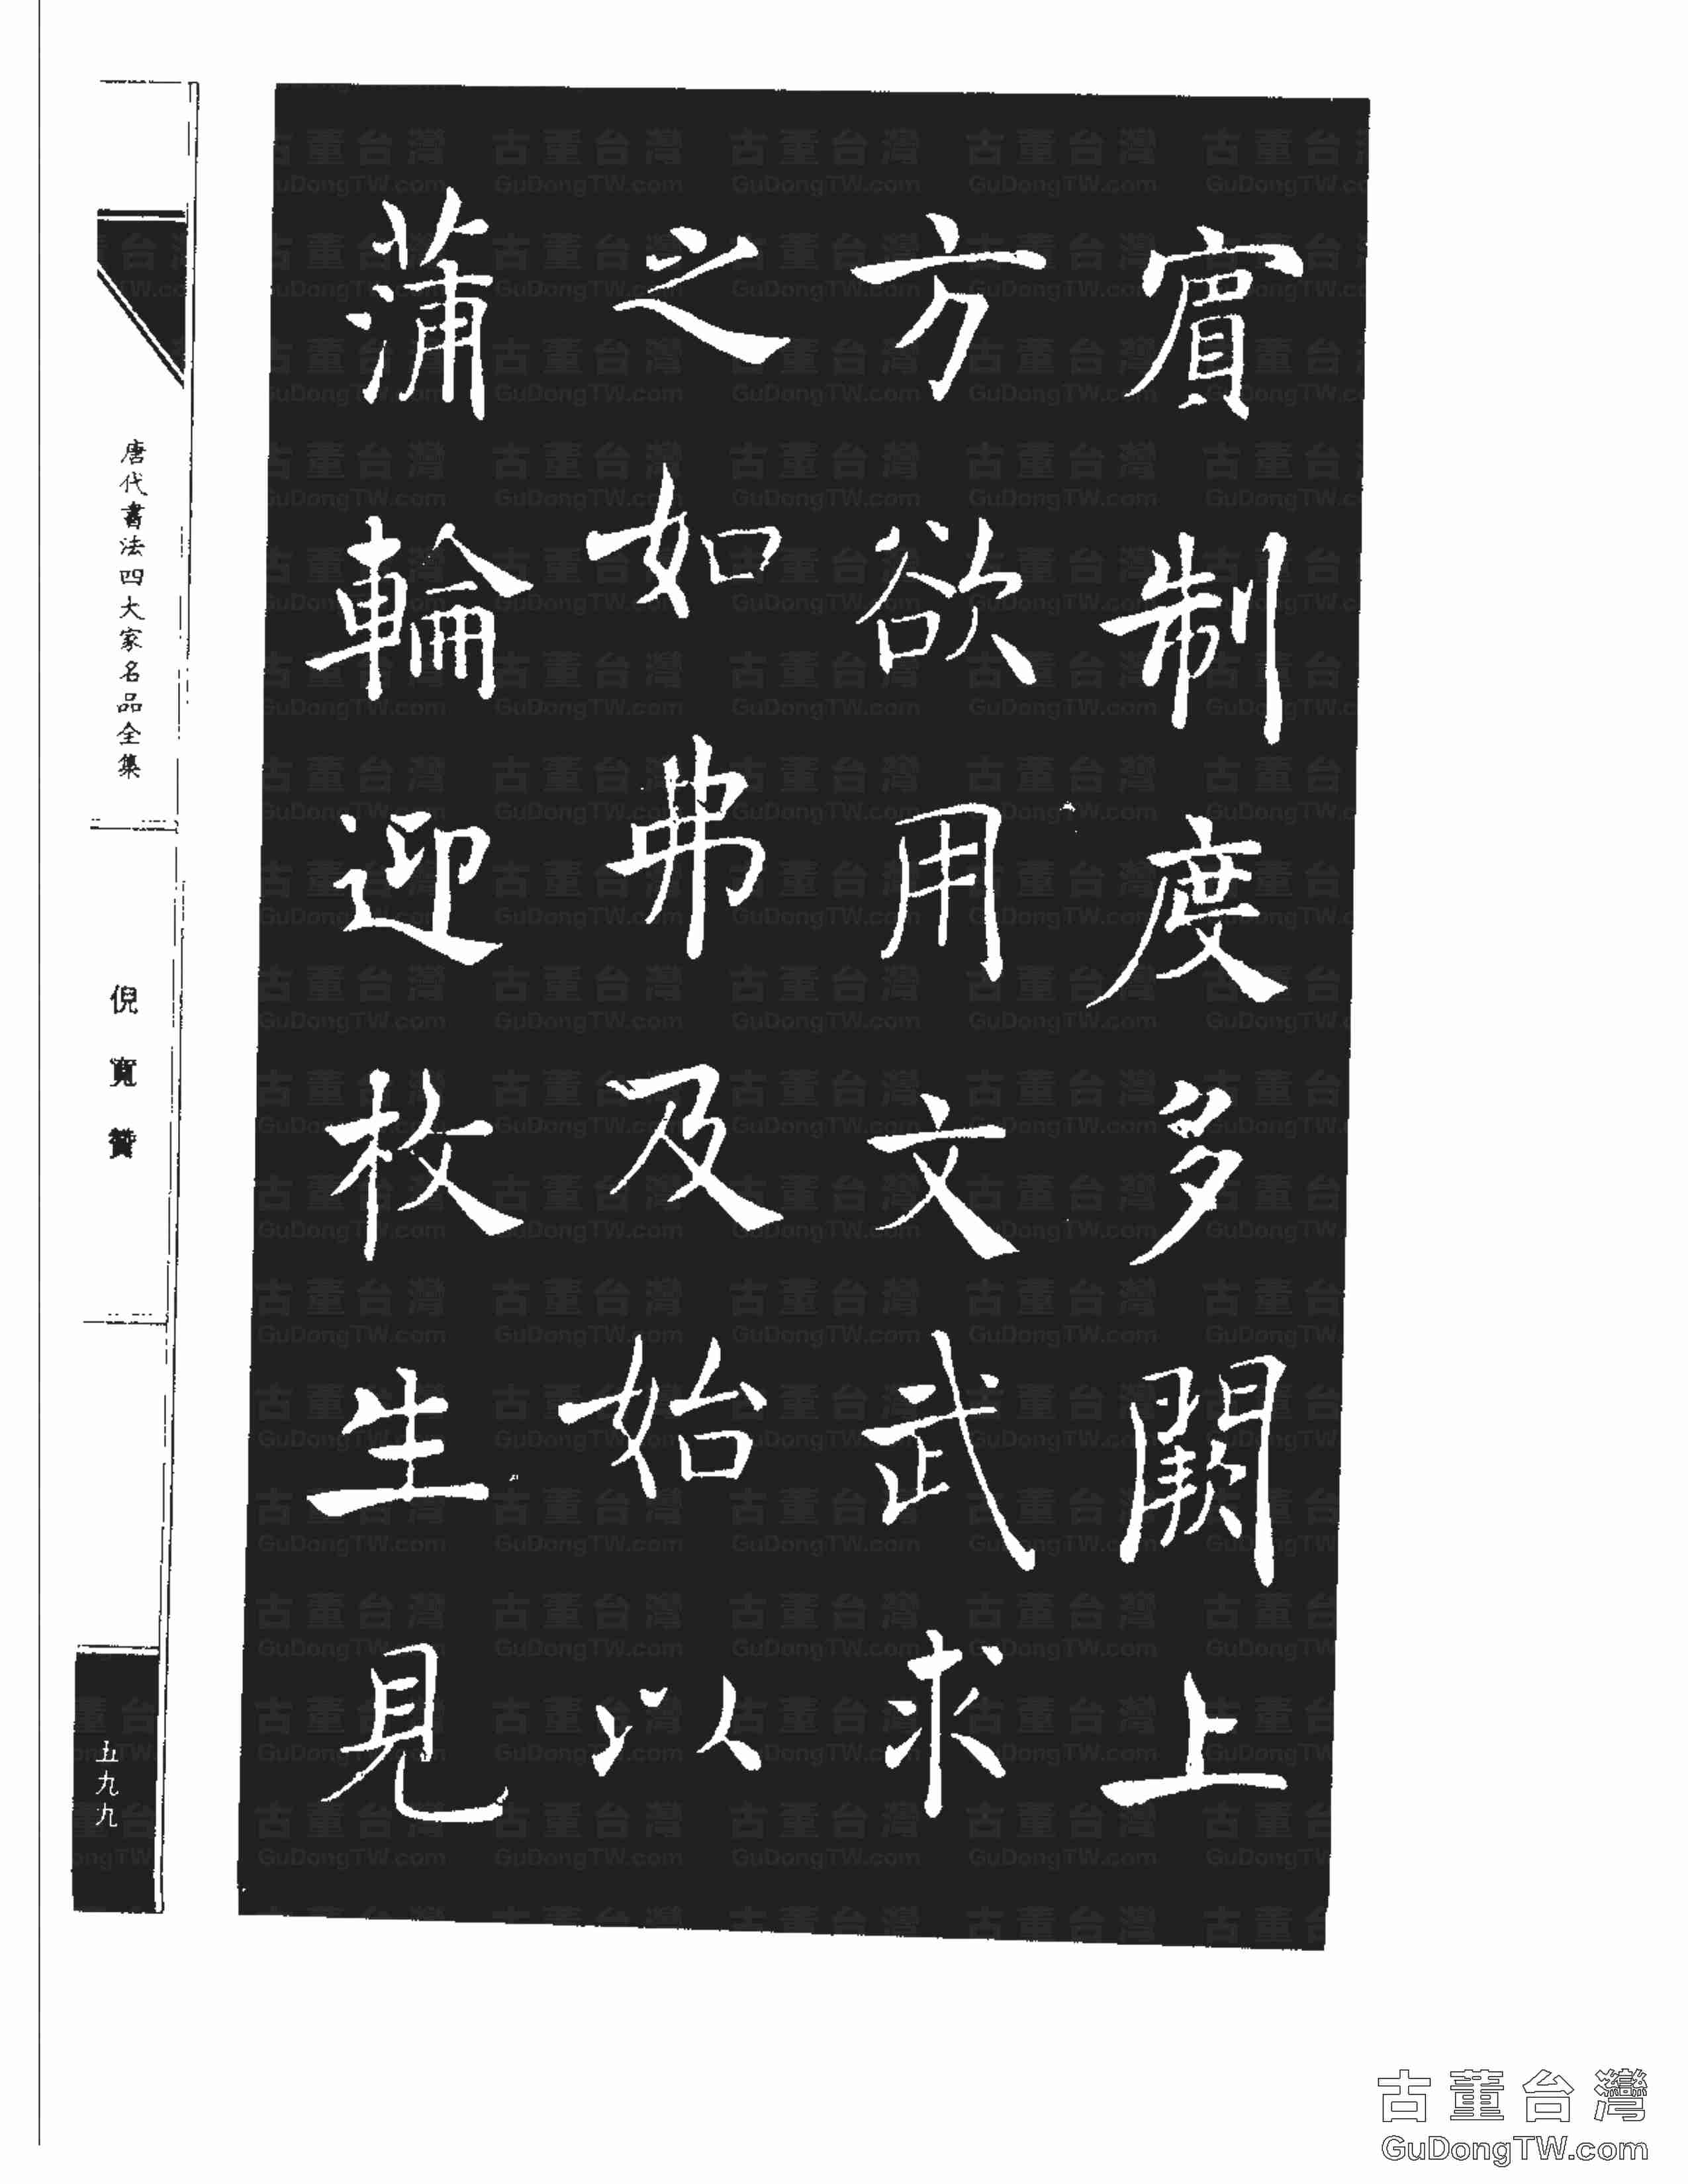 賓制度多闕上
方欲用文武求
之如弗及始以
蒲輪迎枚生見
唐代書法四大家名品全集
倪寬贊
五九九
古董台灣
GuDongTW.com